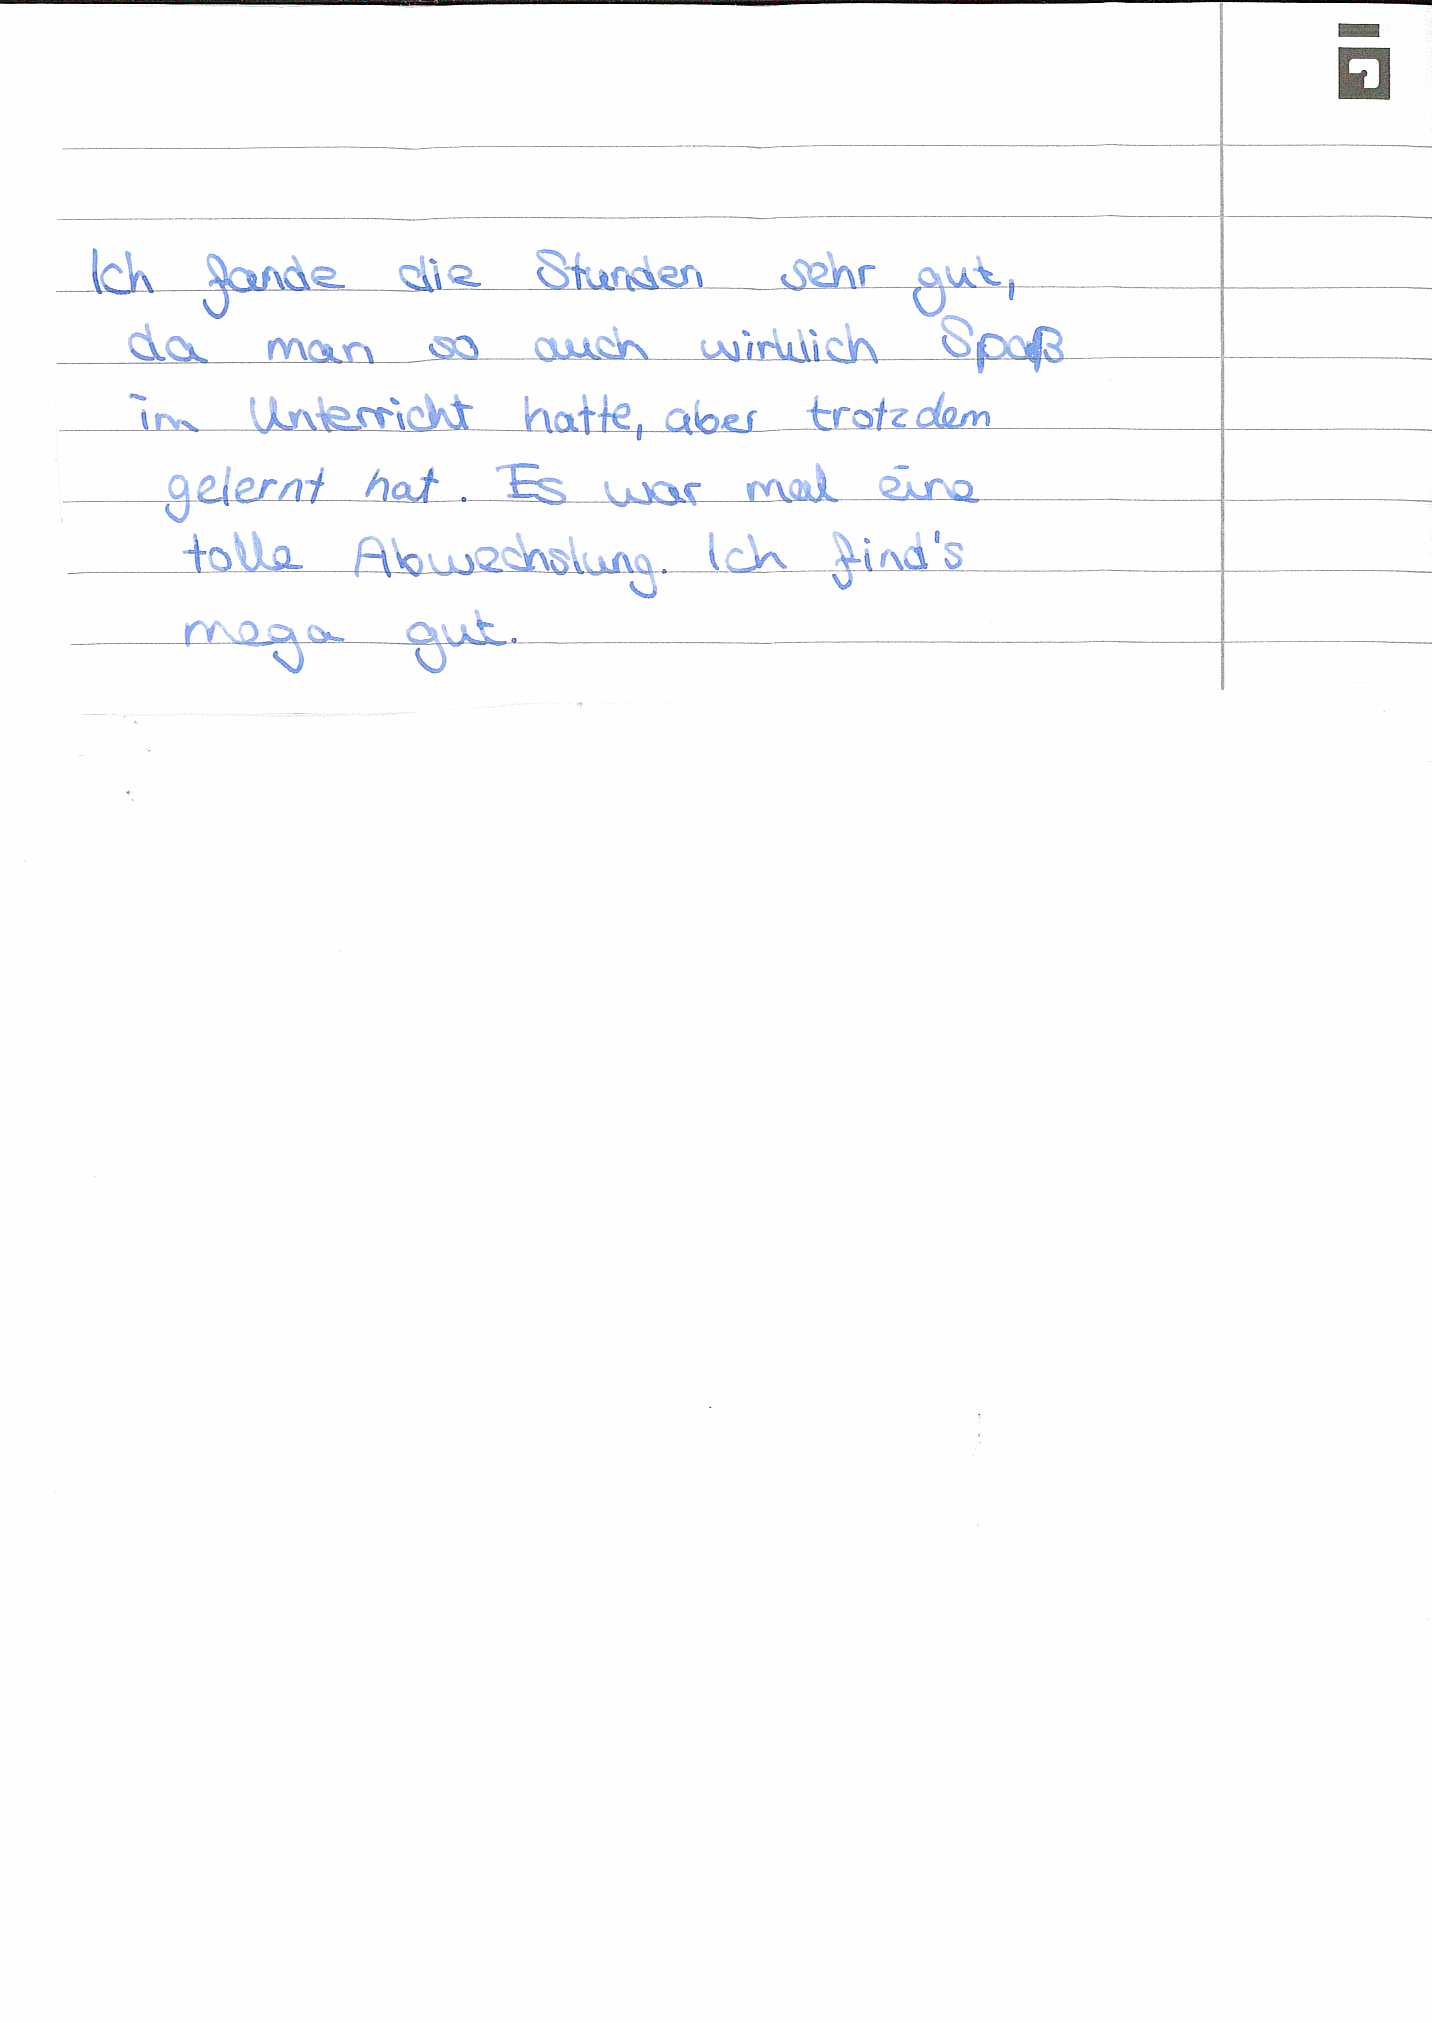 Ich fande die Stunden sehr gut,
da man so auch wirklich Spaß
im Unterricht hatte, aber trotzdem
gelernt hat. Es war mal eine
tolle Abwechslung. Ich find's
mega gut.